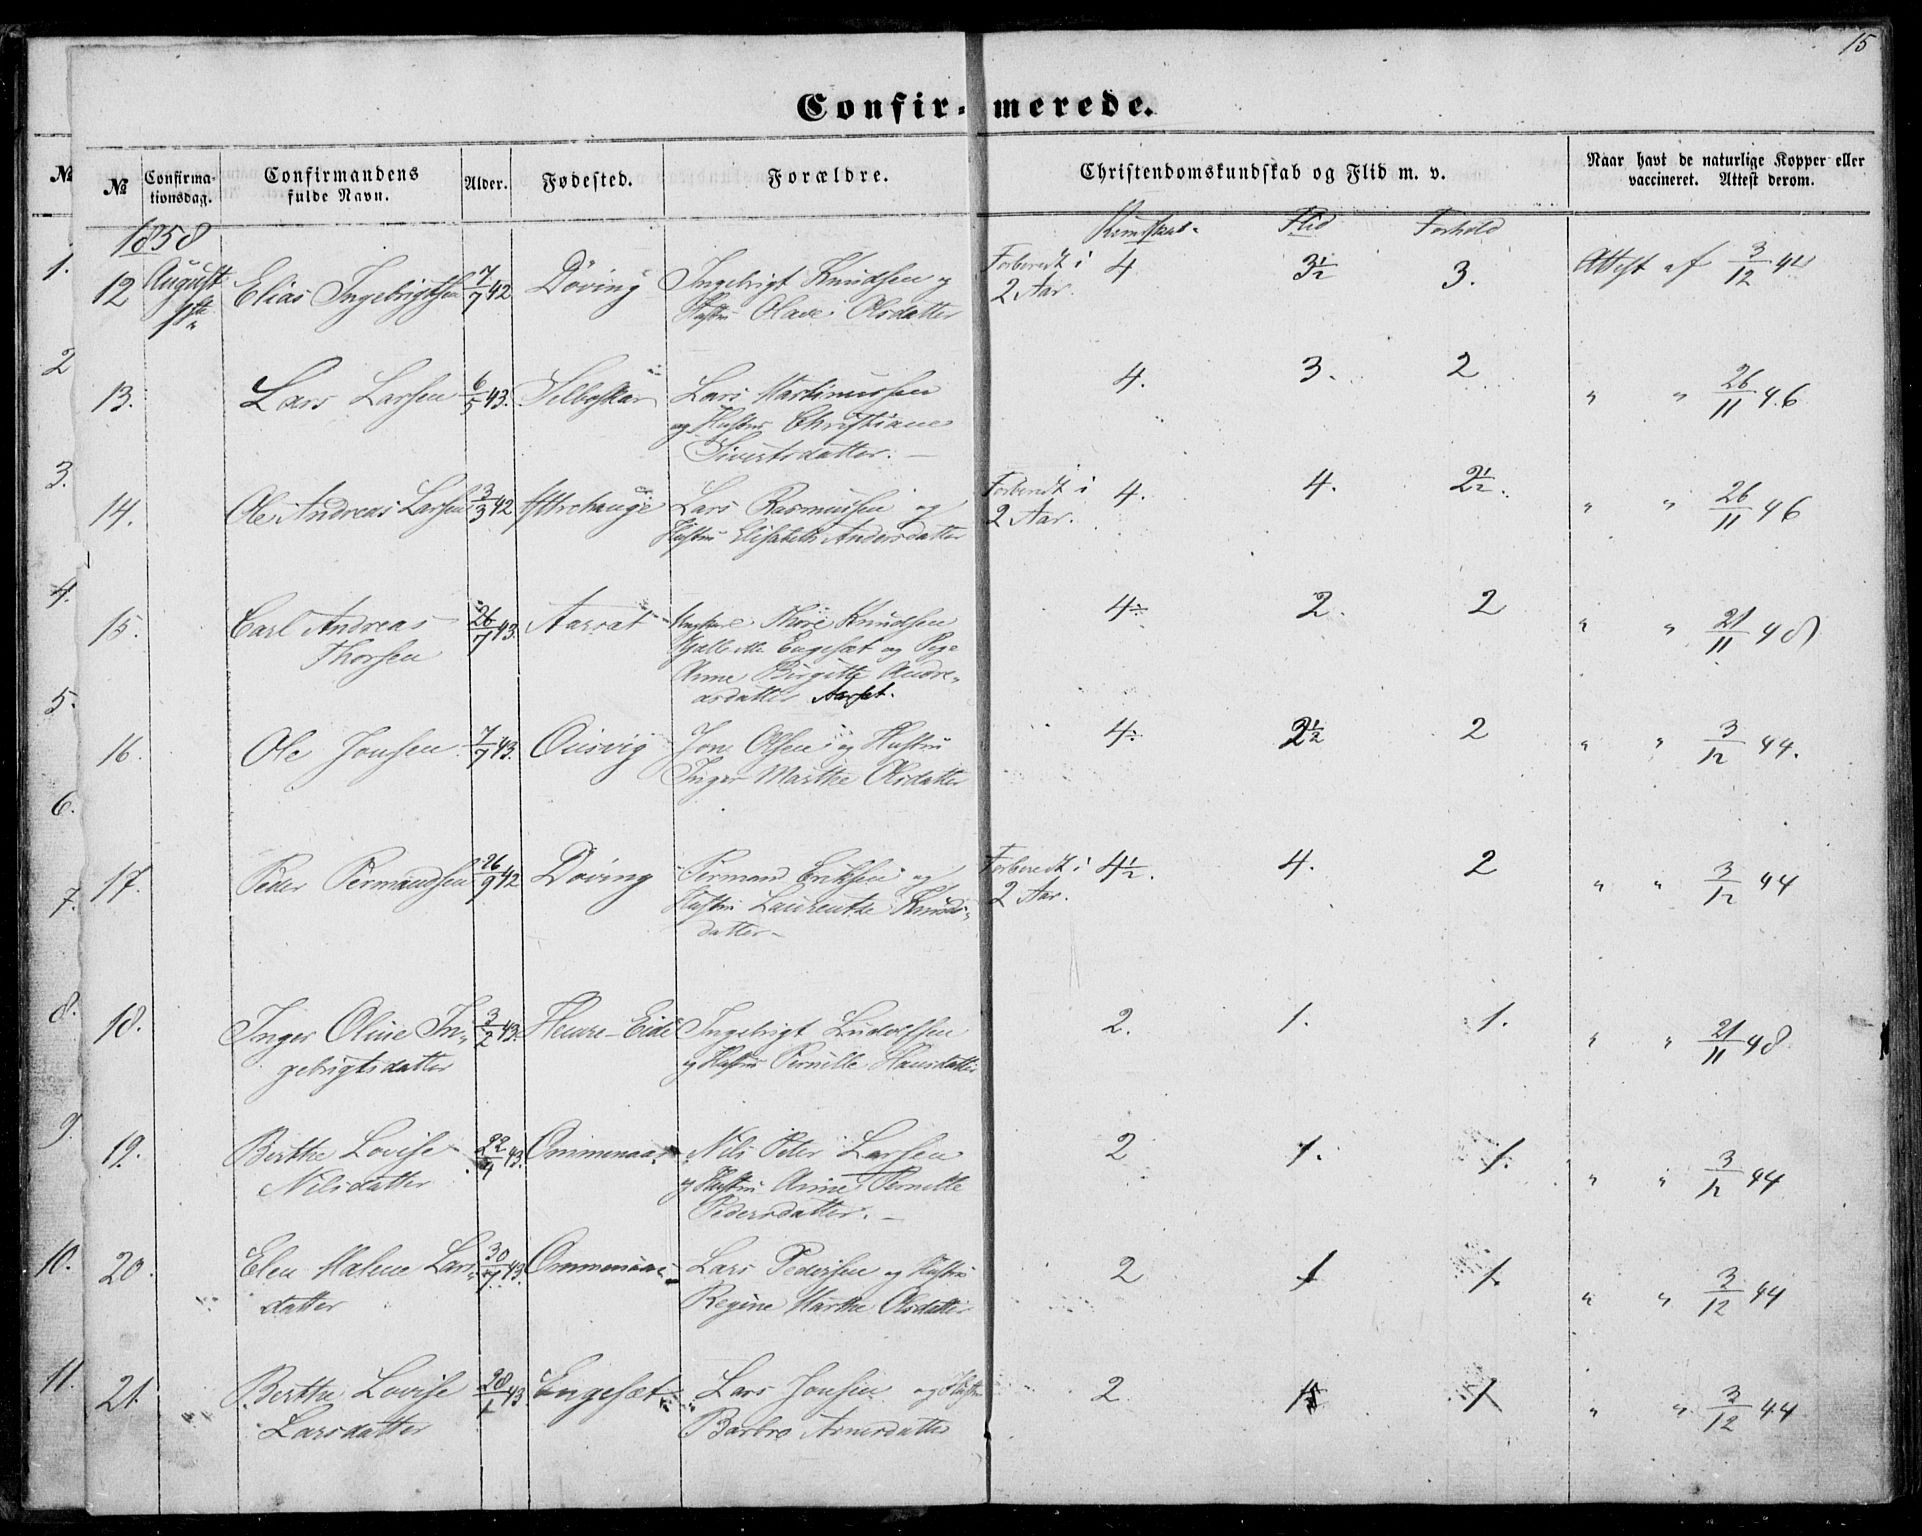 15
Confir- merede.
№ Confirma-tionsdag. Confirmandens fulde Navn. Alder. Fødested. Forældre. Christendomskundskab og Flid m. v. Naar havt de naturlige Kopper eller vaccineret. Attest derom.
№
1858 Kundskab. Flid Forhold
1.
12 August 1ste Elias Ingebrigtsen 7/7 42 Døving Ingebrigt Knudsen og Forberedt i 4 3½ 3. Attest af 3/12 44
Hustru Olave Olsdatter 2 Aar.
2
13. Lars Larsen 6/5 43. Lars Martinussen 4. 3. 2 " " 26/11 46.
og Hustru Christiane
Sivertsdatter. —
3.
14. Ole Andreas Larsen 3/3 42 Lars Rasmussen og Forberedt i 4. 4. 2½. " " 26/11 46
Hustru Elisabeth Andersdatter 2 Aar.
4.
15. Carl Andreas 26/7 43. Aarsæt Ungkarl Thore Knudsen 4÷ 2. 2 " " 21/11 48
Thorsen Engesæt og Pige
Anne Birgitte Andre-
asdatter Aarset.
5.
16. Ole Jonsen 7/7 43. Ousvig Jon Olsen og Hustru 4÷ 2½ 2 " " 3/12 44.
Inger Marthe Olsdatter
6.
17. Peder Permandsen 26/9 42 Døving Permand Eriksen og Forberedt i 4½. 4. 2 " " 3/12 44
7. Hustru Laurentse Knuds- 2 Aar.
datter
8.
18. Inger Oline In- 3/2 43. Eide Ingebrigt Ludolfsen 2. 1. 1. " " 21/11 48
gebrigtsdatter og Hustru Pernille Hansdatter
9.
19. Berthe Lovise 22/4 43. Ommenaas Nils Peter Larsen 2 1. 1. " " 3/12 44
Nilsdatter og Hustru Anne Pernille
Pedersdatter. —
10.
20. Elen Malene Lars- 30/7 43. Ommenaas Lars Pedersen og Hustru 2 1 1. " " 3/12 44
datter Regine Marthe Olsdatter
11.
21. Berthe Lovise 28/1 43 Engesæt Lars Jonsen og Hustru 2. 1 " " 3/12 44
Larsdatter Barbro Arnesdatter